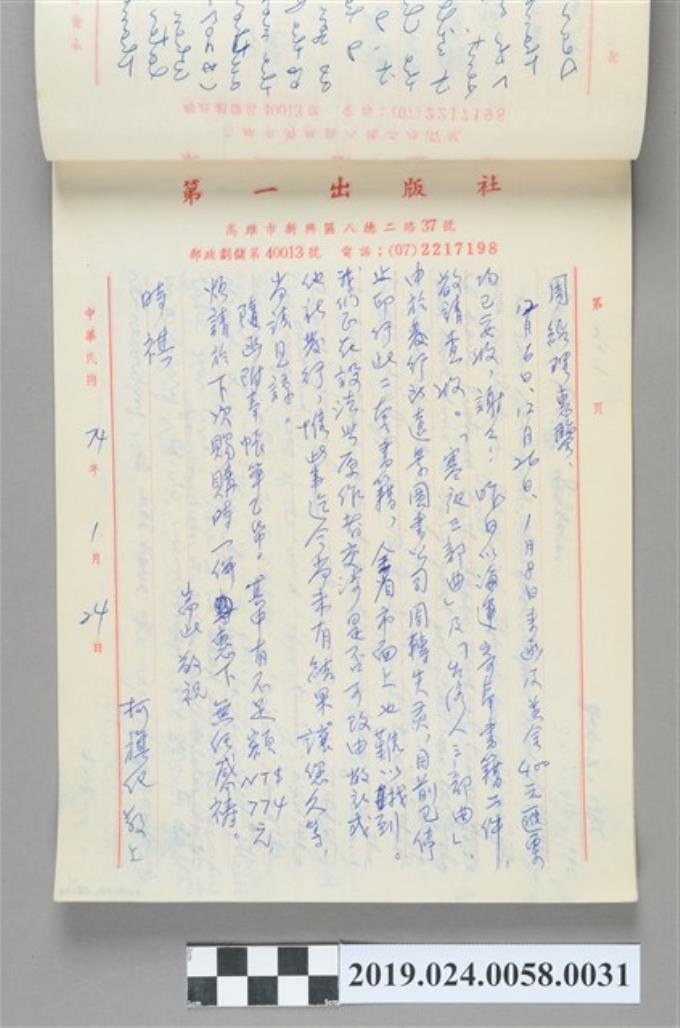 第一出版社
高雄市新興區八德二路37號
郵政劃儲第40013號 電話:(07)2217198
第 頁
周經理惠鑒、
12月6日、12月26日、1月8日來函及美金400元匯票
均已妥收,謝々!昨日以海運寄奉書籍二件,
敬請查收。「寒夜三部曲」及「台灣人三部曲」,
由於發行的遠景圖書公司周轉失靈,目前已停
止印行此二本書籍,全省市面上也難以找到。
我們正在設法與原作者交涉是否可改由敝社或
他社發行,惟此事迄今尚未有結果,讓您久等,
尚請見諒。
隨函附奉帳單乙帋。其中有不足額NT$774元,
煩請於下次賜購時一併惠下,無任感禱。
耑此敬祝
時祺
柯旗化 敬上
中華民國 74年 1月 24日
2019.024.0058.0031